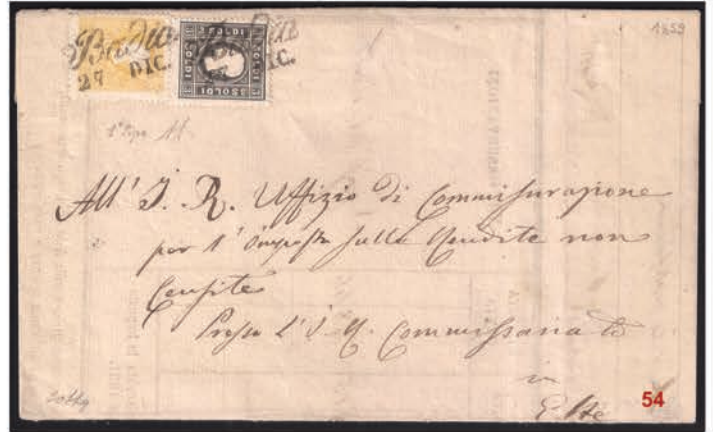 1859
Badia
27 DIC.
3 SOLDI
1° tipo
All' I. R. Uffizio di Commisurazione
per l'Imposta sulle Rendite non
Censite
Presso l' I. R. Commissariato
in
Este
54